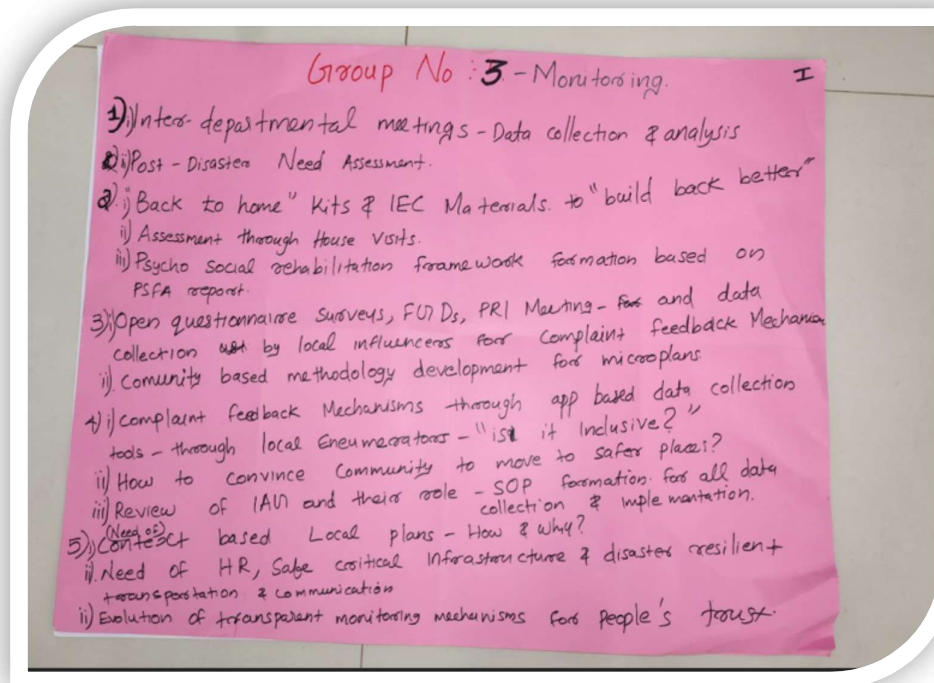 Group No : 3 - Monitoring. I
1) i) Inter-departmental meetings - Data collection & analysis
ii) Post - Disaster Need Assessment.
2) i) "Back to home" Kits & IEC Materials. to "build back better"
ii) Assessment through House Visits.
iii) Psycho Social rehabilitation framework formation based on
PSFA report.
3) i) Open questionnaire Surveys, FGDs, PRI Meeting - and data
collection by local influencers for Complaint feedback Mechanism
ii) Comunity based methodology development for microplans
4) i) Complaint feedback Mechanisms through app based data collection
tools - through local Eneumerators - "is it Inclusive?"
ii) How to convince Community to move to safer places?
iii) Review of IAG and their role - SOP formation for all data
collection & implementation.
(Need of)
5) i) Context based Local plans - How & Why?
ii) Need of HR, Safe critical Infrastructure & disaster resilient
transportation & communication
ii) Evolution of transparent monitoring mechanisms for People's trust.